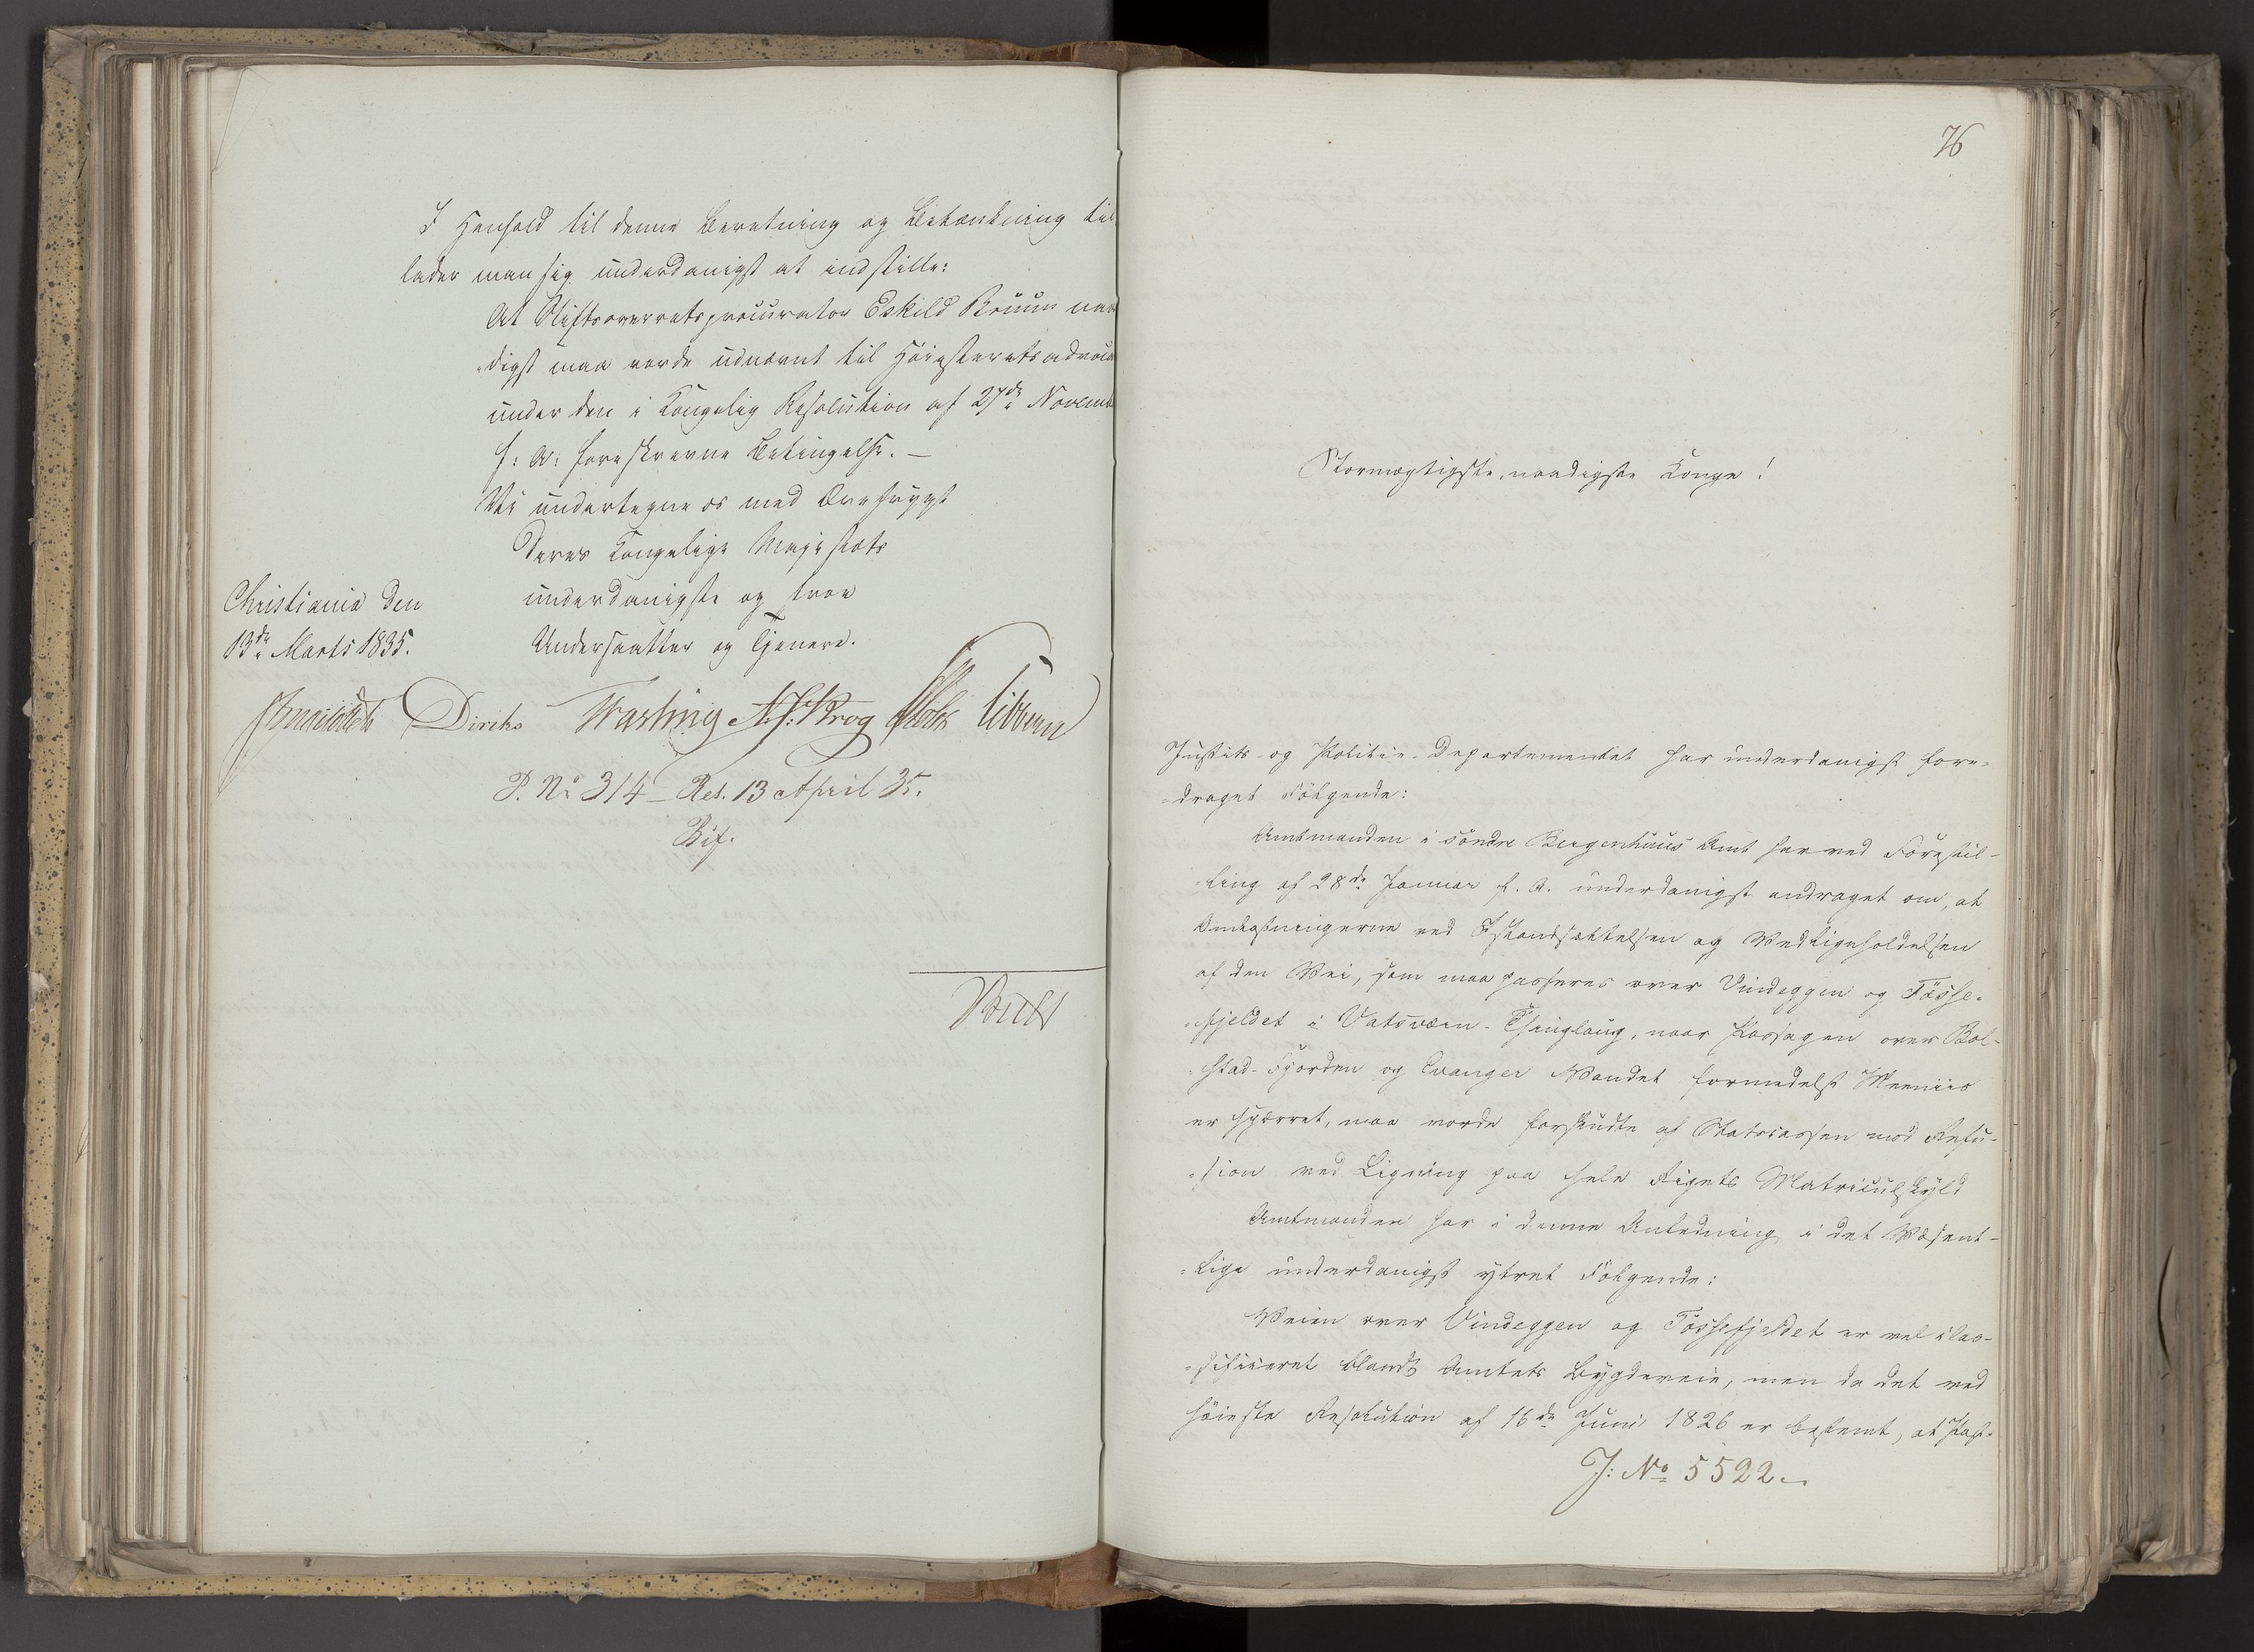 I Henhold til denne Beretning og Betænkning til
lader man sig underdanigst at indstille:
At Stiftsoverretsprocurator Eskild Bruun naa
„digst maa vorde udnævnt til Høiesteretsadvoca
under den i Kongelig Resolution af 27de Novemb
f: A: foreskrevne Betingelse. –
Vi undertegne os med Ærefrygt
Deres Kongelige Majestæts
underdanigste og troe
Undersaatter og Tjenere.
Christiania den
13de Marts 1835.
Diriks Vibe Krog
P. No 314 – Res. 13 April 35.
Bif.
76
Stormægtigste, naadigste Konge!
Justits- og Politie-Departementet har underdanigst fore-
„draget Følgende:
Amtmanden i søndre Bergenhuus Amt har ved Forestil-
„ling af 28de Januar f. A. underdanigst andraget om, at
Omkostningerne ved Istandsættelsen og Vedligeholdelsen
af den Vei, som maa passeres over Vindeggen og Tøsse-
„fjeldet i Vatsværn-Thinglaug, naar Passagen over Bol-
„stad-Fjorden og Evanger Vandet formedelst Meeniis
er spærret, maa vorde forskudte af Statscassen mod Refu-
„sion ved Ligning paa hele Rigets Matriculskyld
Amtmanden har i denne Anledning i det Væsent-
„lige underdanigst ytret Følgende:
Veien over Vindeggen og Tøssefjeldet er vel clas-
„sificeret blandt Amtets Bygdeveie, men da det ved
høieste Resolution af 16de Juni 1826 er bestemt, at Post-
J: No 5522.